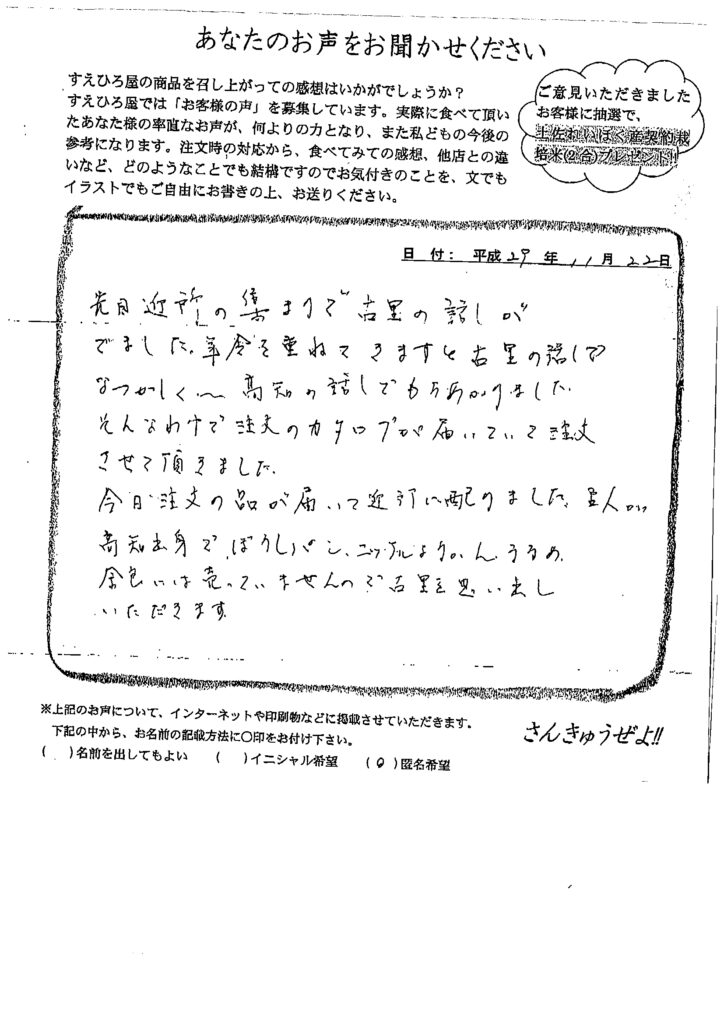 あなたのお声をお聞かせください
すえひろ屋の商品を召し上がっての感想はいかがでしょうか？
すえひろ屋では「お客様の声」を募集しています。実際に食べて頂い
たあなた様の率直なお声が、何よりの力となり、また私どもの今後の
参考になります。注文時の対応から、食べてみての感想、他店との違
いなど、どのようなことでも結構ですのでお気付きのことを、文でも
イラストでもご自由にお書きの上、お送りください。
ご意見いただきました
お客様に抽選で、
土佐れいほく産契約栽
培米(2合)プレゼント!!
日 付： 平成 29 年 11 月 22 日
先日近所の集まりで古里の話しが
でました。年令を重ねてきますと古里の話しで
なつかしく〜高知の話しでもりあがりました。
そんなわけで注文のカタログが届いていて注文
させて頂きました。
今日注文の品が届いて近所に配りました。主人が
高知出身で、ぼうしパン、ようかん、うるめ
は売っていませんので古里を思い出し
いただきます
※上記のお声について、インターネットや印刷物などに掲載させていただきます。
下記の中から、お名前の記載方法に〇印をお付け下さい。
(　)名前を出してもよい　(　)イニシャル希望　(〇)匿名希望
さんきゅうぜよ!!